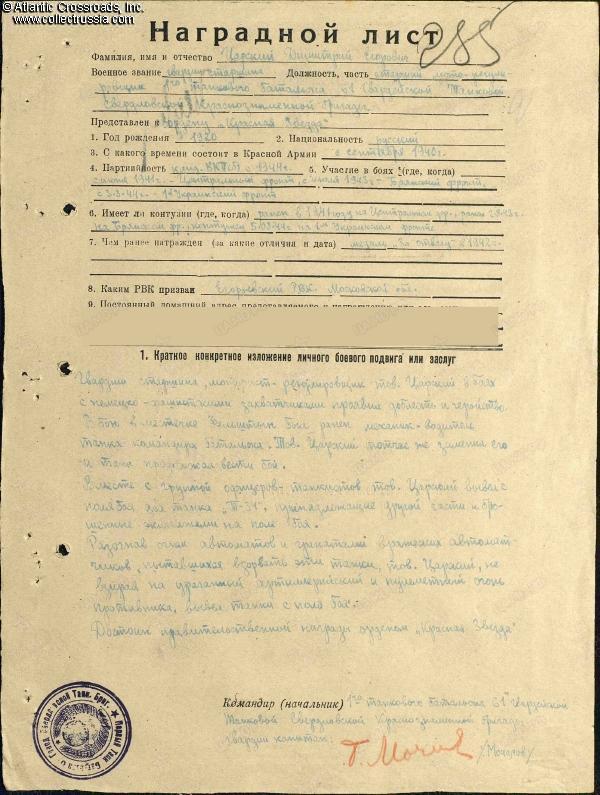 © Atlantic Crossroads, Inc.
www.collectrussia.com
Наградной лист
285
Фамилия, имя и отчество Царский Дмитрий Егорович
Военное звание гвардии старшина Должность, часть старший мото-регули-
ровщик 1го танкового батальона 61 Гвардейской Танковой
Свердловской Краснознаменной бригады
Представлен к ордену „Красная Звезда"
1. Год рождения 1920 2. Национальность русский
3. С какого времени состоит в Красной Армии с сентября 1940г.
4. Партийность канд. ВКП(б) с 1944г. 5. Участие в боях (где, когда)
1941г. - Центральный фронт, с июля 1943г - Брянский фронт,
с 3-3-44г - 1й Украинский фронт
6. Имеет ли контузии (где, когда) ранен в 1941 году на Центральном фр., ранен
на Брянском фр., контужен на 1 ом Украинском фронте
7. Чем ранее награжден (за какие отличия и дата) медаль „За отвагу" 1942г.
8. Каким РВК призван Егорьевский РВК Московской обл.
9. Постоянный домашний адрес представляемого к награждению
1. Краткое конкретное изложение личного боевого подвига или заслуг
Гвардии старшина, мотоцист-регулировщик тов. Царский в боях
с немецко-фашистскими захватчиками проявил доблесть и геройство.
В бою в местечке был ранен механик-водитель
танка командира батальона. Тов. Царский тотчас же заменил его
и танк продолжал вести бой.
Вместе с группой офицеров-танкистов тов. Царский вывел с
поля боя два танка „Т-34", принадлежащие другой части и бро-
шенные экипажами на поле боя.
Разогнав огнем автоматов и гранатами вражеских автомат-
чиков, пытавшихся взорвать эти танки, тов. Царский, не
взирая на ураганный артиллерийский и пулеметный огонь
противника, вывел танки с поля боя.
Достоин правительственной награды орденом „Красная Звезда"
Командир (начальник) 1го танкового батальона 61й Гвардейской
Танковой Свердловской Краснознаменной бригады
гвардии капитан: /Мочалов/